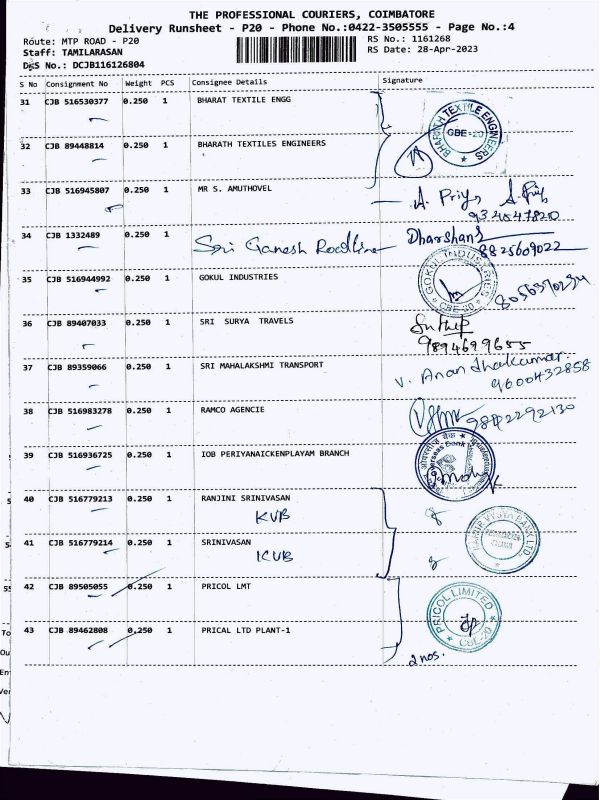 THE PROFESSIONAL COURIERS, COIMBATORE
Delivery Runsheet - P20 - Phone No.:0422-3505555 - Page No.:4
Route: MTP ROAD - P20 RS No.: 1161268
Staff: TAMILARASAN RS Date: 28-Apr-2023
D&S No.: DCJB116126804
S No Consignment No Weight PCS Consignee Details Signature
31 CJB 516530377 0.250 1 BHARAT TEXTILE ENGG
BHARATH TEXTILE ENGINEERS
CBE-20
32 CJB 89448814 0.250 1 BHARATH TEXTILES ENGINEERS
33 CJB 516945807 0.250 1 MR S. AMUTHOVEL A. Priya
34 CJB 1332489 0.250 1 Sri Ganesh Roadline Dharshan
8825609022
35 CJB 516944992 0.250 1 GOKUL INDUSTRIES
GOKUL INDUSTRIES
CBE-20
8056370234
36 CJB 89407033 0.250 1 SRI SURYA TRAVELS
9894699655
37 CJB 89359066 0.250 1 SRI MAHALAKSHMI TRANSPORT V. Anandhakumar
9600432858
38 CJB 516983278 0.250 1 RAMCO AGENCIE 9842292130
39 CJB 516936725 0.250 1 IOB PERIYANAICKENPLAYAM BRANCH
40 CJB 516779213 0.250 1 RANJINI SRINIVASAN
KVB
41 CJB 516779214 0.250 1 SRINIVASAN
KVB
42 CJB 89505055 0.250 1 PRICOL LMT
PRICOL LIMITED
CBE-20
43 CJB 89462808 0.250 1 PRICAL LTD PLANT-1
2 nos.